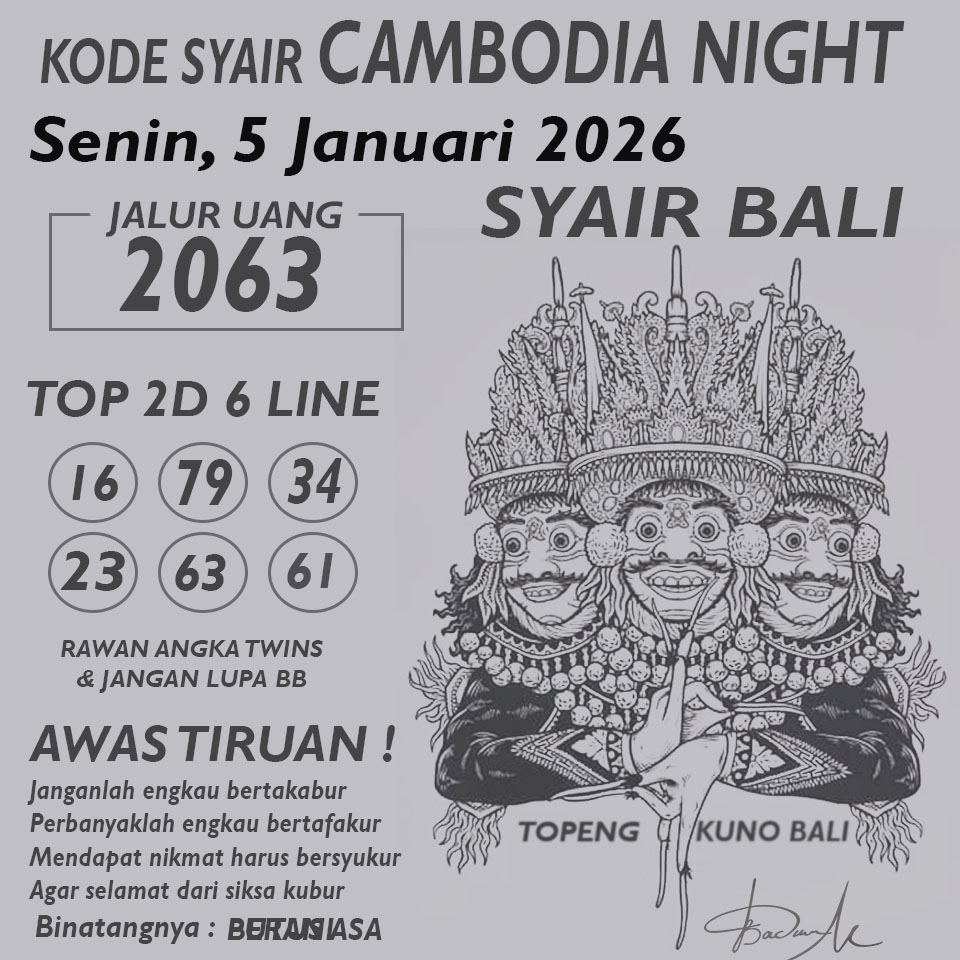 KODE SYAIR CAMBODIA NIGHT
Senin, 5 Januari 2026
SYAIR BALI
JALUR UANG
2063
TOP 2D 6 LINE
16 79 34
23 63 61
RAWAN ANGKA TWINS
& JANGAN LUPA BB
AWAS TIRUAN !
Janganlah engkau bertakabur
Perbanyaklah engkau bertafakur
Mendapat nikmat harus bersyukur
Agar selamat dari siksa kubur
Binatangnya :
TOPENG KUNO BALI